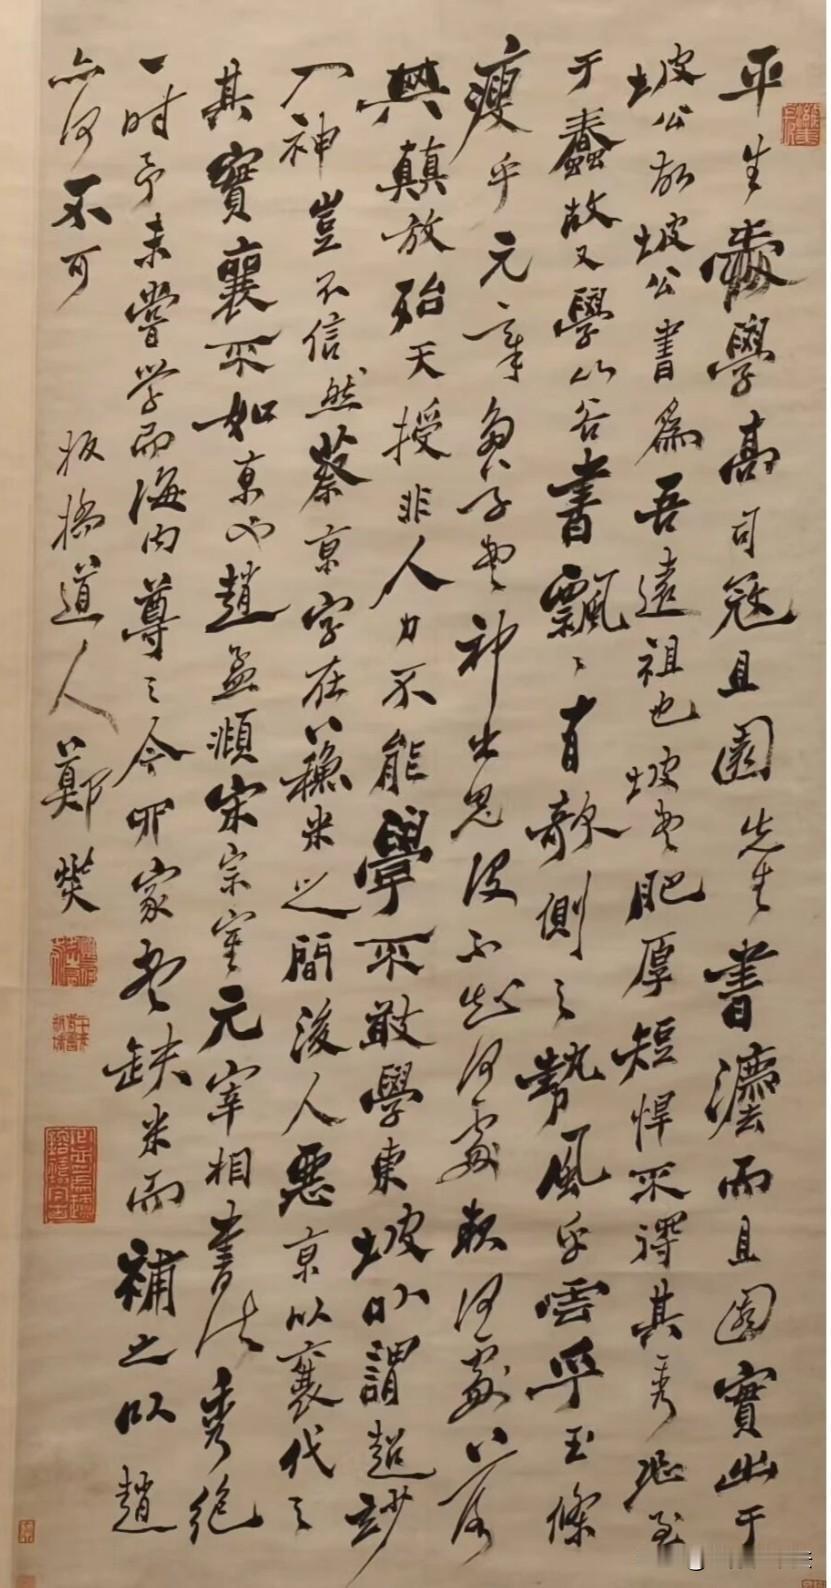 平生愛學高司寇且園先生書灋而且園實出于
坡公故坡公書為吾遠祖也坡書肥厚短悍不得其秀恐至
于蠢故又學山谷書飄〻有欹側之勢風乎雲乎玉條
瘦乎元章書神出鬼没不知何處起何處落
與顛放殆天授非人力不能學不敢學東坡以謂超妙
入神豈不信然蔡京字在蘇米之間後人惡京以襄代之
其實襄不如京也趙孟頫宋宗室元宰相書法秀絶
一時予未嘗學而海内尊之今四家書缺米而補之以趙
亦何不可 板橋道人鄭燮